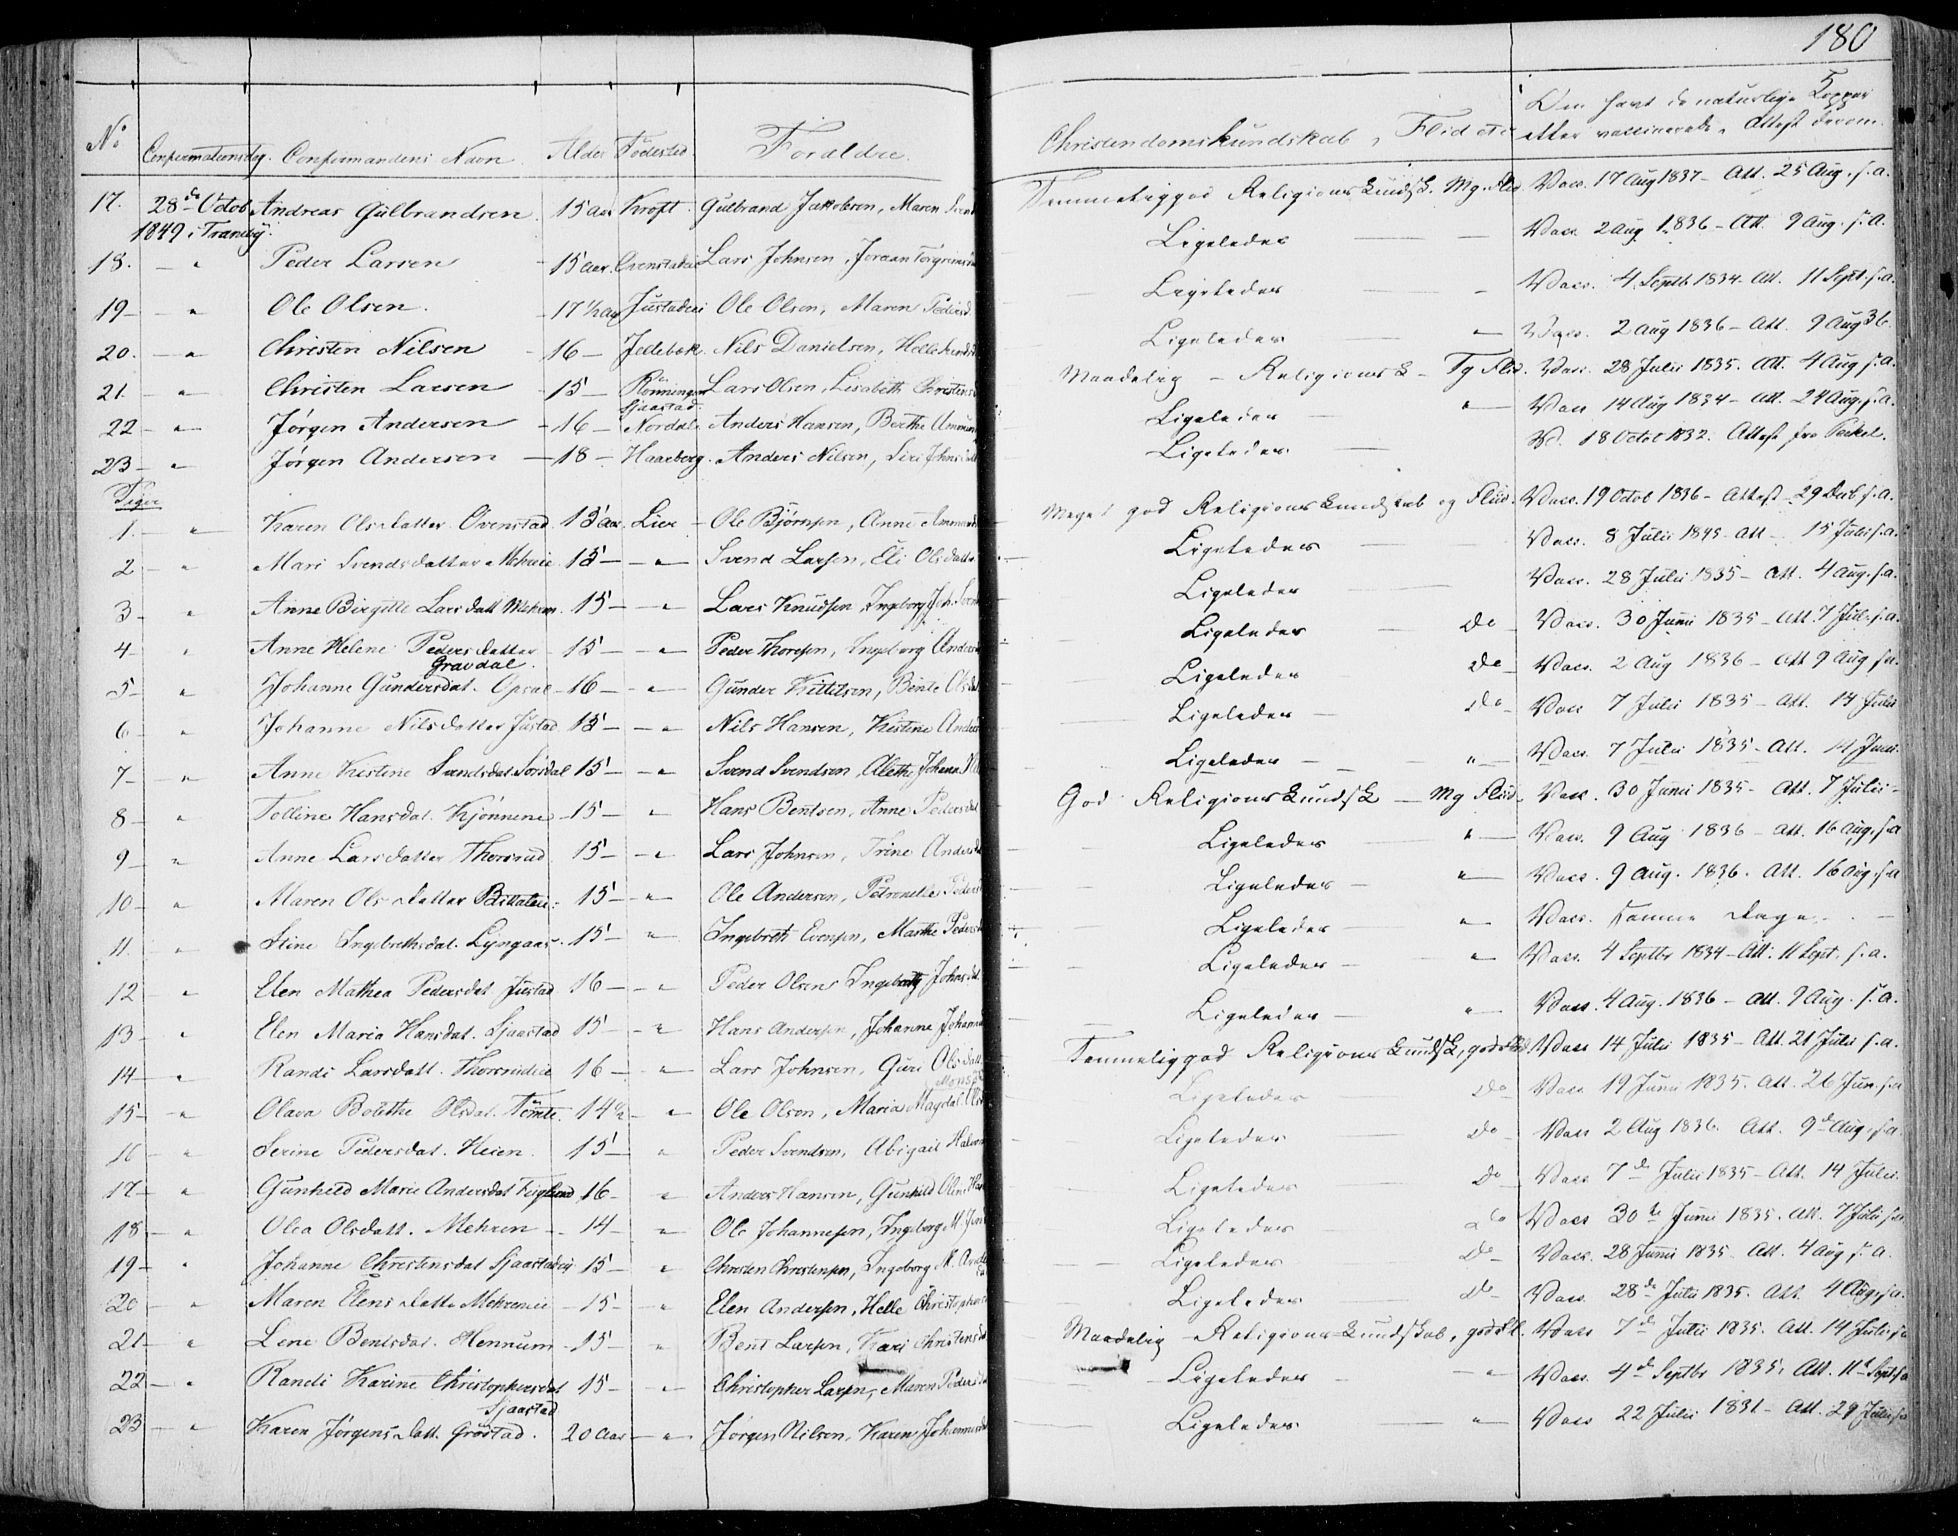 180
No Confirmationsdag. Confirmandens Navn. Alder Födested. Foraldre. Christendomskundskab, Flid etc Om havt de naturlige Kopper
eller vaccinerede, Attest derom.
17. 28de Octob. Andreas Gulbrandsen 15 aar Kroft. Gulbrand Jakobsen, Maren Temmeliggod Religionskundsk. Mg. Flid. Vacc. 17 Aug 1837 - Att. 25 Aug. s.a.
1849 i Tranby.
18. - " Peder Larsen - 15 aar. Ovenstadeie Lars Johnsen, Joraan Ligeledes Vacc. 2 Aug 1836 - Att. 9 Aug. s.a.
19 - " Ole Olsen. - 17½ aar Justadeie Ole Olsen, Maren Pedersd Ligeledes Vacc. 4 Septb 1834 - Att. 11 Sept. s.a.
20. - " Christen Nilsen - 16 - Jellebek. Nils Danielsen, Helle Ligeledes " Vacc. 2 Aug 1836 - Att. 9 Aug 36.
21 - " Christen Larsen - 15 - Rönningen Lars Olsen, Lisabeth Maadelig - Religionsk - Tg Flid. Vacc. 28 Julii 1835. Att. 4 Aug s.a.
Sjaastad.
22 - " Jörgen Andersen - 16 - Nordal. Anders Hansen, Berthe Ligeledes " Vacc 14 Aug 1834 - Att. 24 Aug. s.a.
23 - " Jörgen Andersen - 18 - Haarberg. Anders Nilsen, Siri Johns Ligeledes V. 18 Octob 1832. Attest fra
Piger
1. - " Karen Olsdatter Ovenstad 15 aar. Lier - Ole Björnsen, Anne Meget god Religionskundskab og Flid. Vacc. 19 Octob 1836 - Attest 29 s.a.
2 - " Mari Svendsdatter 15 - " Svend Larsen, Eli Olsdatter Ligeledes Vacc. 8 Julii 1845 - Att - 15 Julii s.a.
3 - " Anne Birgitte Larsdatt 15 - " Lars Knudsen, Ingeborg Joh. Ligeledes Vacc. 28 Julii 1835 - Att. 4 Aug. s.a.
4 - " Anne Helene Pedersdatter - 15 - " Peder Thoresen, Ingeborg Anders Ligeledes Do Vacc. 30 Junii 1835 - Att. 7 Juli s.a.
Gravdal.
5 - " Johanne Gundersdat. Opsal - 16 - " Gunder Kittilsen, Bente Olsdat Ligeledes Do Vacc. 2 Aug 1836 - Att 9 Aug s.a.
6 - " Johanne Nilsdatter Justad 15 - " Nils Hansen, Kistine Anders Ligeledes Do Vacc 7 Julii 1835 - Att. 14 Julii
7 - " Anne Kistine Svendsdat. Sörsdal 15 - " Svend Svendsen, Alethe Johanne Ligeledes " Vacc. 7 Julii 1835 - Att. 14
8 - " Tolline Hansdat. Kjönnene - 15 - " Hans Bentsen, Anne Pedersdat God Religionskundsk - Mg Flid. Vacc. 30 Junii 1835 - Att. 7 Julii -
9 - " Anne Larsdatter Thorsrud 15 - " Lars Johnsen, Trine Andersd Ligeledes " Vacc. 9 Aug 1836 - Att. 16 Aug. s.a
10 - " Maren Olsdatter 15 - " Ole Andersen, Petronelle Peders Ligeledes " Vacc. 9 Aug. 1836. Att. 16 Aug. s.a
11. " Stine Ingebrethsdat. Lyngaas. 15 - " Ingebreth Evensen, Marthe Peders Ligeledes " Vacc. samme Dage.
12 - " Elen Mathea Pedersdat Justad 16 - " Peder Olsens Ingeborg Johnsdat. Ligeledes " Vacc. 4 Septbr 1834 - Att: 11 Sept. s.a.
13 - " Elen Maria Hansdat. Sjaastad 15 - " Hans Andersen, Johanne Johann Ligeledes " Vacc. 4 Aug. 1836 - Att. 9 Aug. s.a.
14 - " Randi Larsdatt. Thorsrudeie 16 - " Lars Johnsen, Guri Olsdatt Temmeliggod Religionskundsk, god Flid. Vacc 14 Julii 1835 - Att. 21 Julii s.a.
15 - " Olava Bolethe Olsdat. Tömte. 14½ - " Ole Olsen, Maria Magdal. Ligeledes Do Vacc 19 Junii 1835. Att. 26 Jun. s.a
16 - " Serine Pedersdat. Heien. 15 - " Peder Svendsen, Abigail Ligeledes Do Vacc 2 Aug 1836. Att. 9de Aug. s.a.
17 - " Gunhild Marie Andersdat. 16 - " Anders Hansen, Gunhild Oline Ligeledes Do Vacc. 7de Julii 1835 - Att. 14 Julii.
18 - " Olea Olsdatt. Mehren - 14 - " Ole Johannesen, Ingeborg M. Ligeledes Do Vacc 30te Junii 1835. Att. 7 Julii s.a
19 - " Johanne Christensdat Sjaastadeie 15 - " Christen Christensen, Ingeborg M. Ligeledes Do Vacc. 28 Junii 1835. Att. 4 Aug s.a.
20 - " Maren Elensdatte Mehreneie - 15 - " Elen Andersen, Helle Christophers Ligeledes Do Vacc. 28de Julii 1835. Att. 4 Aug. s.a.
21 - " Lene Bentsdat. Hennum - 15 - " Bent Larsen, Kari Christensdat Maadelig - Religionskundskab, god Fl. Vacc 7de Julii 1835. Att. 14 Julii s.a
22 - " Randi Karine Christophersdat 15 - " Christopher Larsen, Maren Pedersdat - Ligeledes - " Vacc. 4de Septbr 1835, Att. 11te Sept s.a
Sjaastad
23 - " Karen Jörgensdatt. Gröstad. 20 aar - " Jörgen Nilsen, Karen Johannesd Ligeledes " Vacc 22 Julii 1831 - Att. 29 Julii s.a